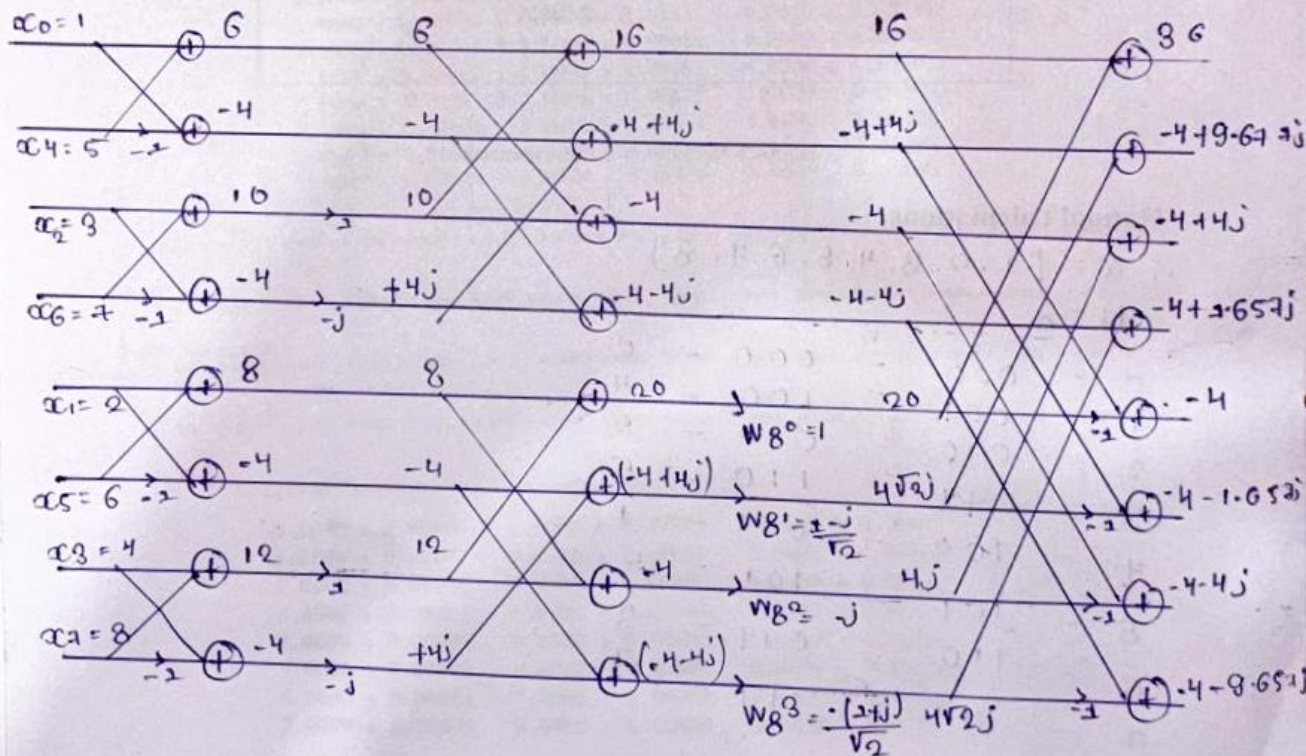 x0 = 1 6 6 16 16 36
x4 = 5 -1 -4 -4 -4+4j -4+4j -4+9.677j
x2 = 3 10 1 10 -4 -4 -4+4j
x6 = 7 -1 -4 -j +4j -4-4j -4-4j -4+1.657j
x1 = 2 8 8 20 W8^0 = 1 20 -1 -4
x5 = 6 -1 -4 -4 (-4+4j) W8^1 = 1-j/√2 4√2j -1 -4-1.657j
x3 = 4 12 1 12 -4 W8^2 = -j 4j -1 -4-4j
x7 = 8 -1 -4 -j +4j (-4-4j) W8^3 = -(1+j)/√2 4√2j -1 -4-9.657j